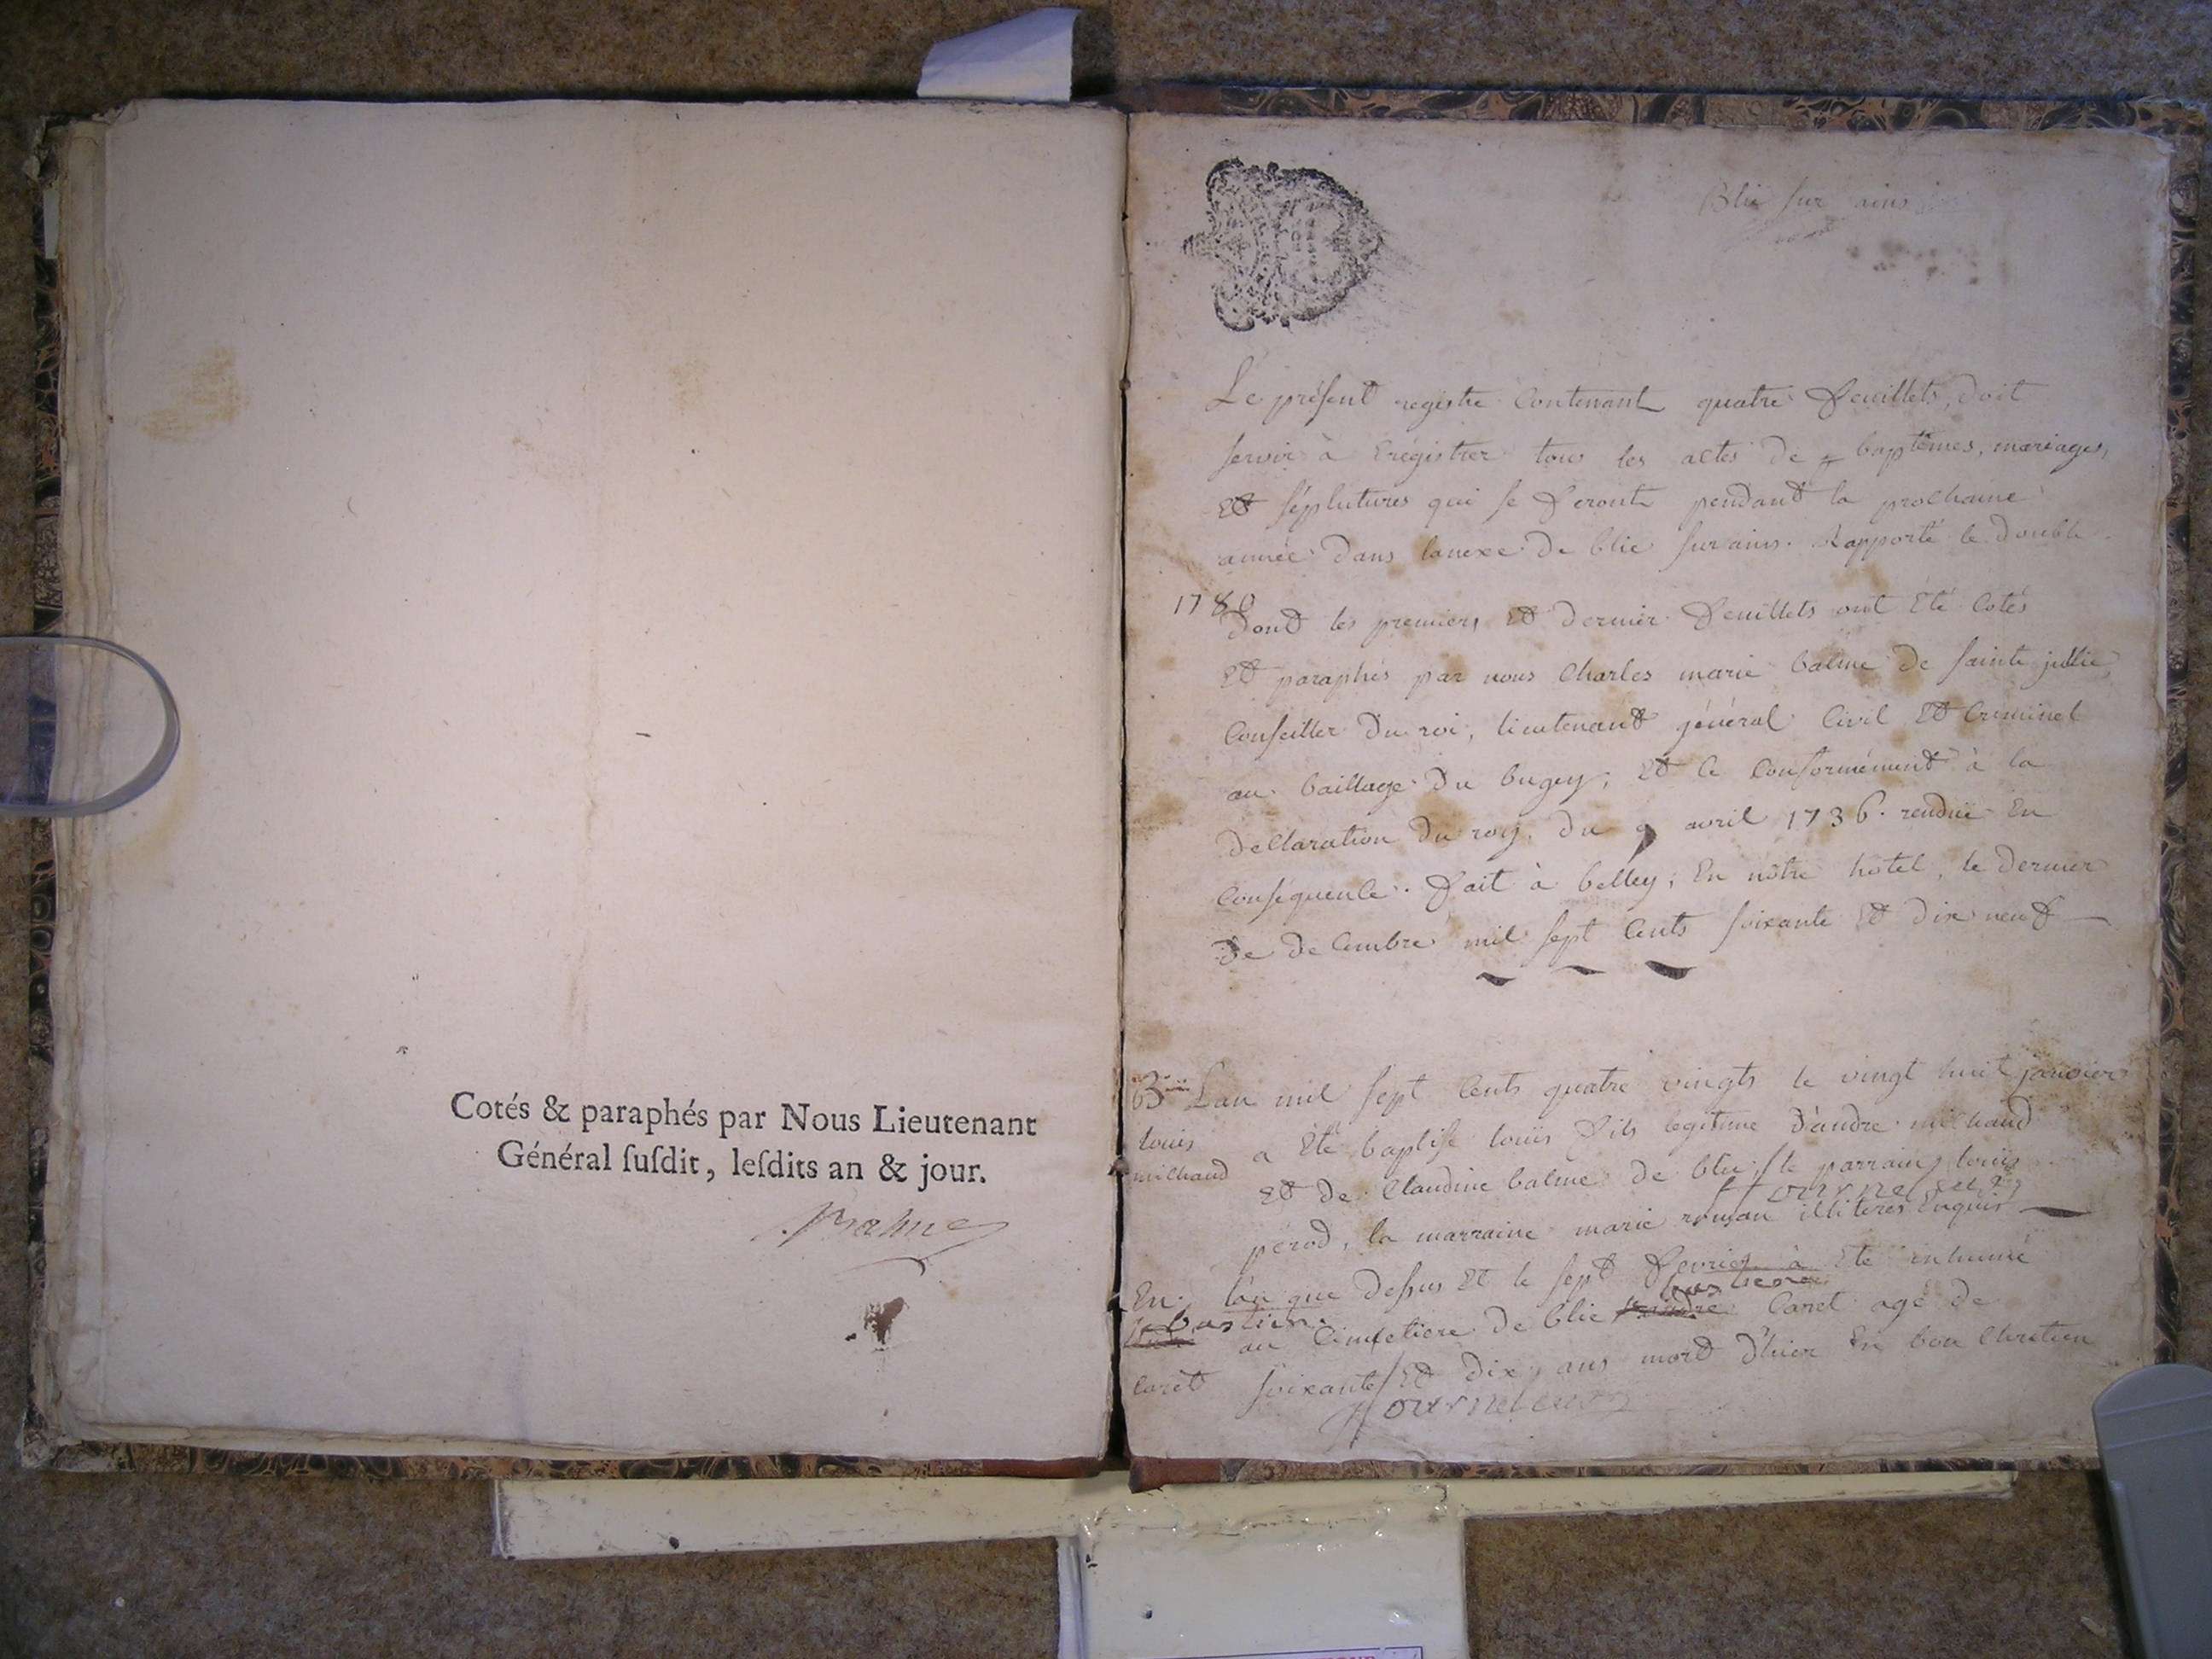 Cotés & paraphés par Nous Lieutenant
Général ſuſdit, leſdits an & jour.
Balme
Blie sur ains
Le présent registre contenant quatre feuillets, doit
servir à érégistrer tous les actes de baptêmes, mariages,
et séplutures qui se feront pendant la prochaine
année dans lanexe de blie sur ains. Rapporté le double
1780
dont les premiers et dernier feuillets ont été cotés
et paraphés par nous Charles marie balme de sainte jullie
conseiller du roi, lieutenant général civil et criminel
au baillage du bugey, et ce conformément à la
declaration du roy, du 9 avril 1736. rendue en
conséquence. fait à belley, en nôtre hôtel, le dernier
de decembre mil sept cents soixante et dix neuf
B Lan mil sept cents quatre vingts le vingt huit janvier
louis
milhaud
a été baptise louis fils legitime d'andre milhaud
et de claudine balme de blie, le parrain louis
perod, la marraine marie illiteres enquis
En. l'an que dessus et le sept fevrier à été inhumé
bastien
au cimetiere de blie bastien caret agé de
caret soixante et dix ans mort d'hier en bon chretien